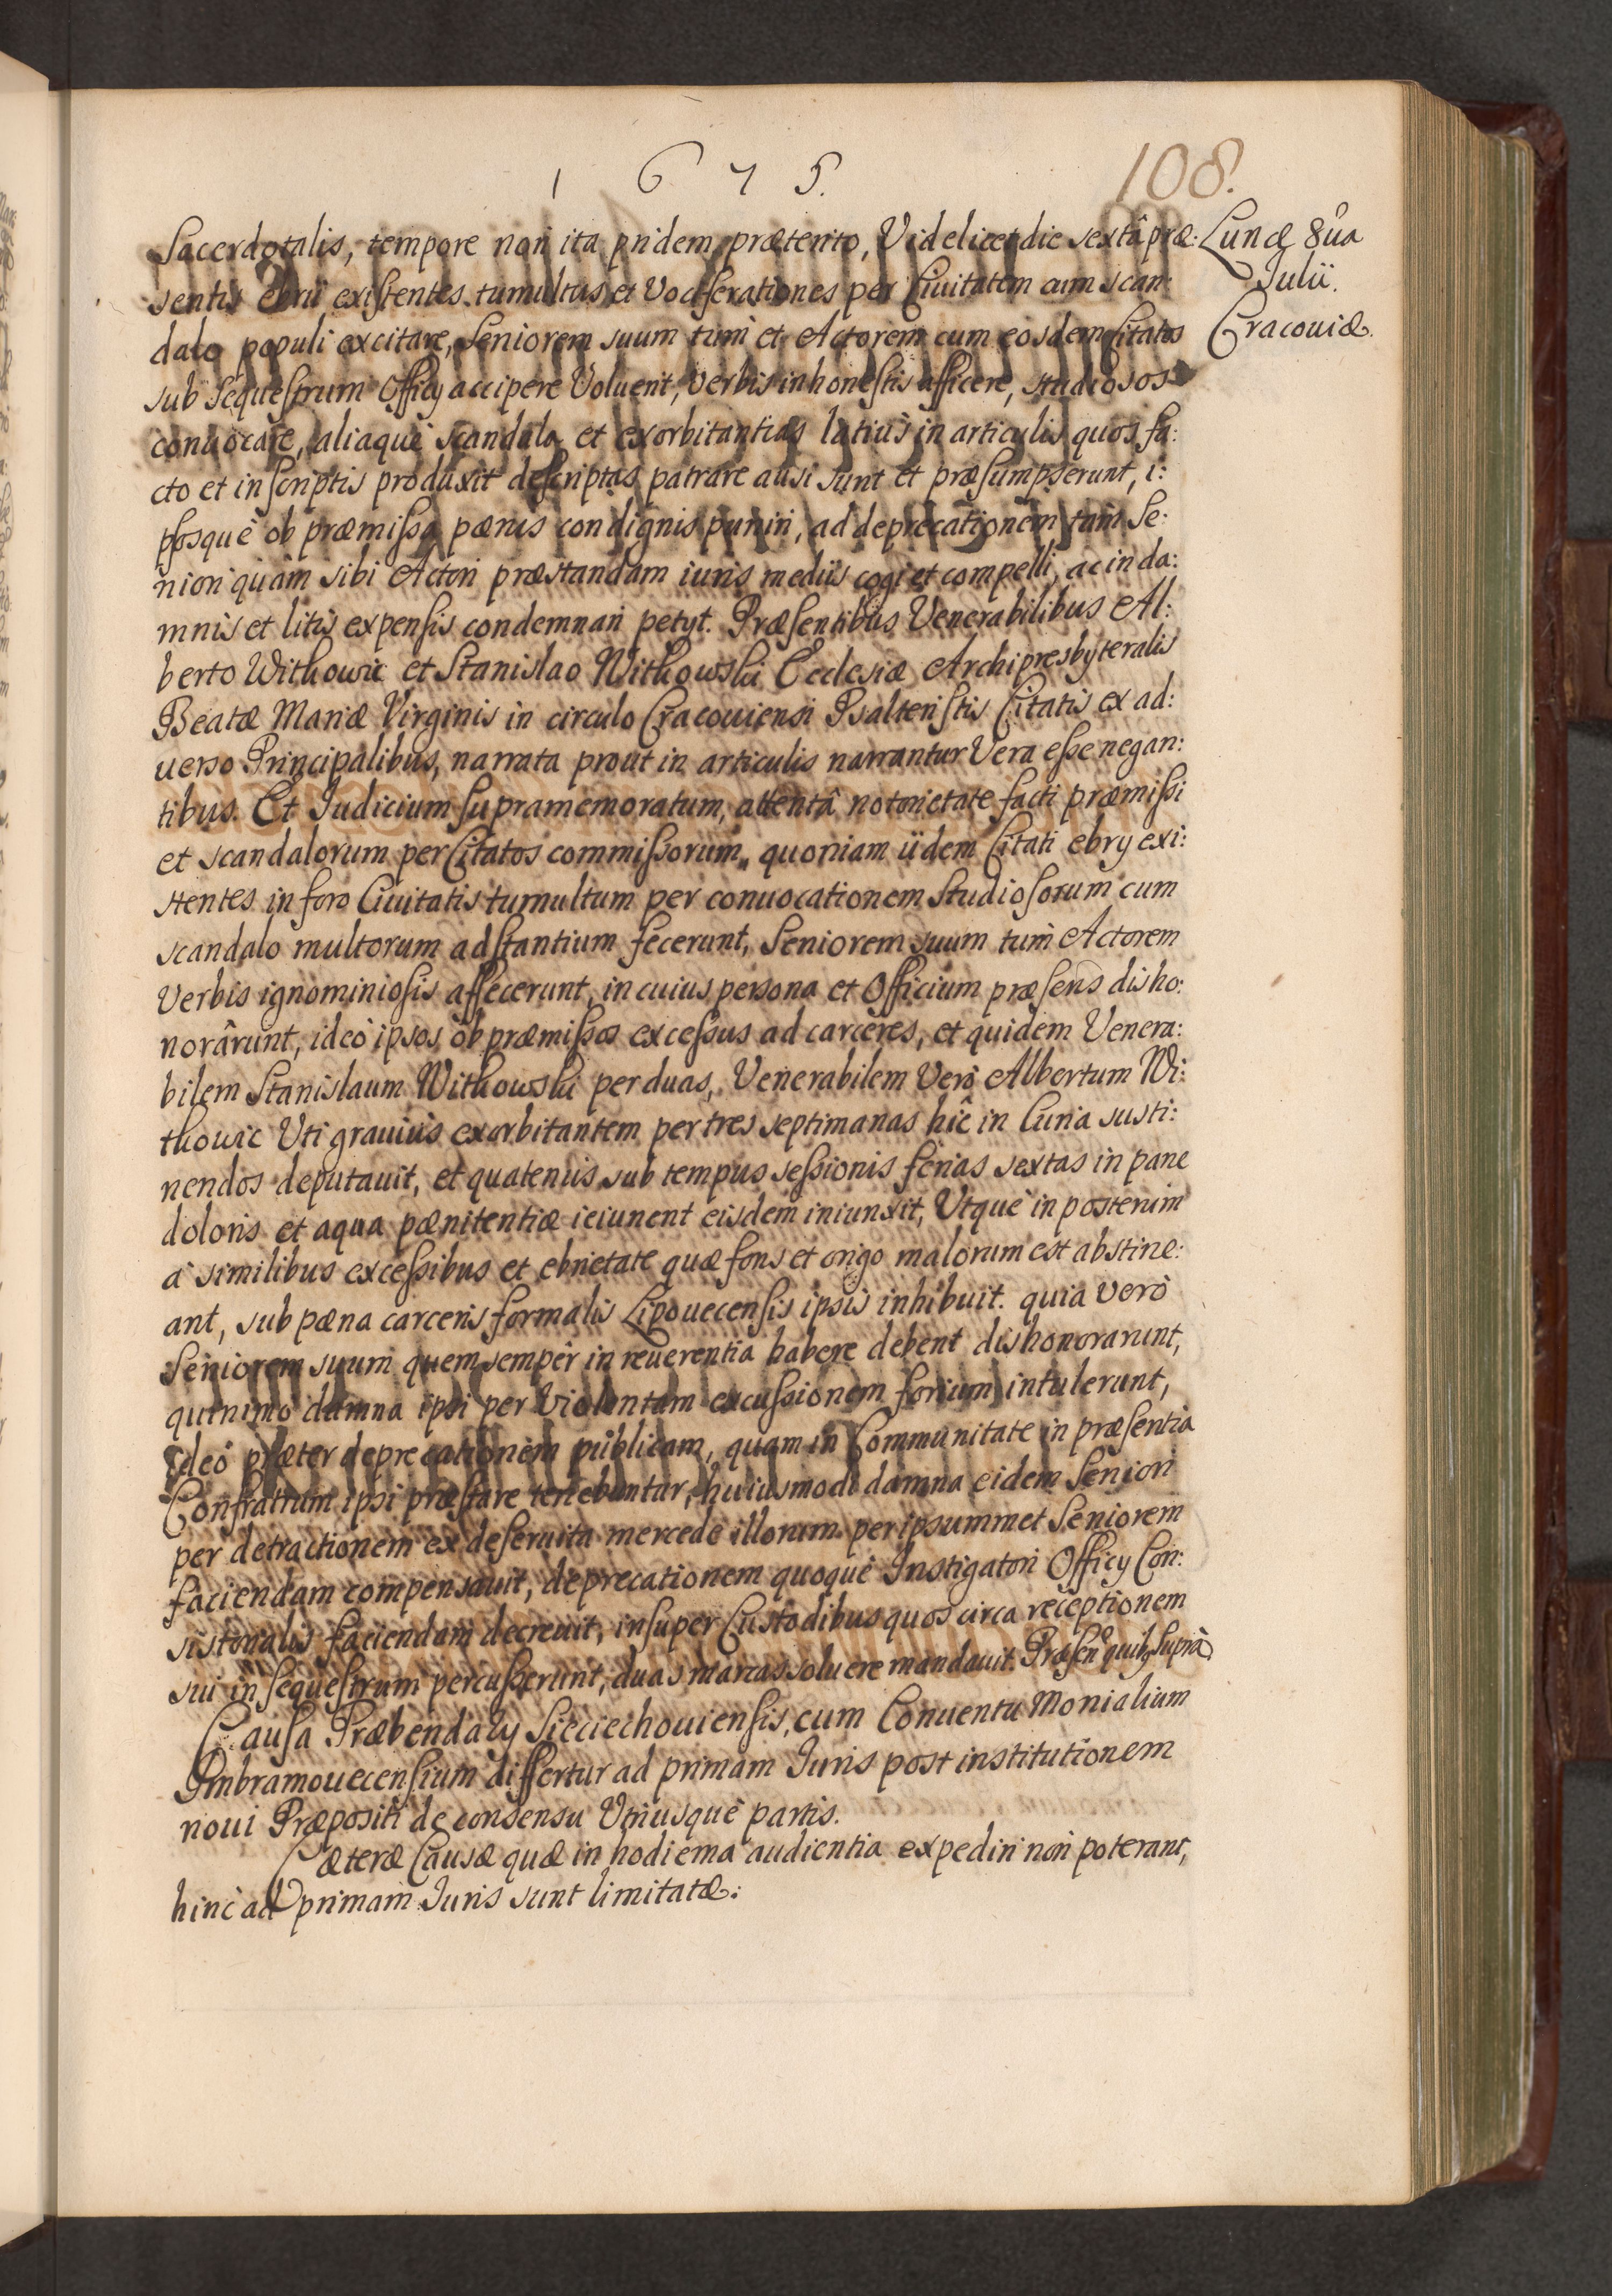 1 6 7 5.
108.
Lunæ 8ua
Iulii.
Cracouiæ.
Sacerdotalis, tempore non ita pridem præterito, Videlicet die sextâ præ:
sentis ebrii existentes tumultus et Vociferationes per Ciuitatem cum scan:
dalo populi excitare, Seniorem suum tùm et Actorem cum eosdem Citatos
sub sequestrum Officy accipere Voluerit, verbis inhonestis afficere, studiosos
conuocare, aliaquè scandala et exorbitantias latiùs in articulis quos fa:
cto et in scriptis produxit descriptas patrare ausi sunt et præsumpserunt, i:
psosquè ob præmissa pænis condignis puniri, ad deprecationem tam Se:
niori quàm sibi Actori præstandam iuris mediis cogi et compelli, ac in da:
mnis et litis expensis condemnari petyt. Præsentibus Venerabilibus Al:
berto Withowic et Stanislao Withowski Ecclesiæ Archipresbyteralis
Beatæ Mariæ Virginis in circulo Cracouiensi Psalteristis Citatis ex ad:
uerso Principalibus, narrata prout in articulis narrantur Vera esse negan:
tibus. Et Iudicium supramemoratum, attentâ notorietate facti præmissi
et scandalorum per Citatos commissorum, quoniam iidem Citati ebry exi:
stentes in foro Ciuitatis tumultum per conuocationem studiosorum cum
scandalo multorum adstantium fecerunt, Seniorem suum tùm Actorem
Verbis ignominiosis affecerunt, in cuius persona et Officium præsens disho:
norârunt, ideò ipsos ob præmissos excessus ad carceres, et quidem Venera:
bilem Stanislaum Withowski per duas, Venerabilem Verò Albertum Wi:
thowic Uti grauiùs exorbitantem per tres septimanas hîc in Curia susti:
nendos deputauit, et quatenùs sub tempus sessionis ferias sextas in pane
doloris et aqua pænitentiæ ieiunent eisdem iniunxit, Utquè in posterum
à similibus excessibus et ebrietate quæ fons et origo malorum est abstine:
ant, sub pæna carceris formalis Lipouecensis ipsis inhibuit. quia verò
Seniorem suum quem semper in reuerentia habere debent dishonorarunt,
quinimò damna ipsi per Violentam excussionem forium intulerunt,
Ideò præter deprecationem publicam, quam in Communitate in præsentia
Confratrum ipsi præstare tenebuntur, huiusmodi damna eidem Seniori
per detractionem ex deseruita mercede illorum per ipsummet Seniorem
faciendam compensauit, deprecationem quoquè Instigatori Officy Con:
sistorialis faciendam decreuit, insuper Custodibus quos circa receptionem
sui in sequestrum percusserunt, duas marcas soluere mandauit. Præsen. quib9 suprà.
Causa Præbendary Sieciechouiensis, cum Conuentu Monialium
Imbramouecensium differtur ad primam Iuris post institutionem
noui Præpositi de consensu Utriusquè partis.
Cæteræ Causæ quæ in hodierna audientia expediri non poterant,
hinc ad primam Iuris sunt limitatæ: